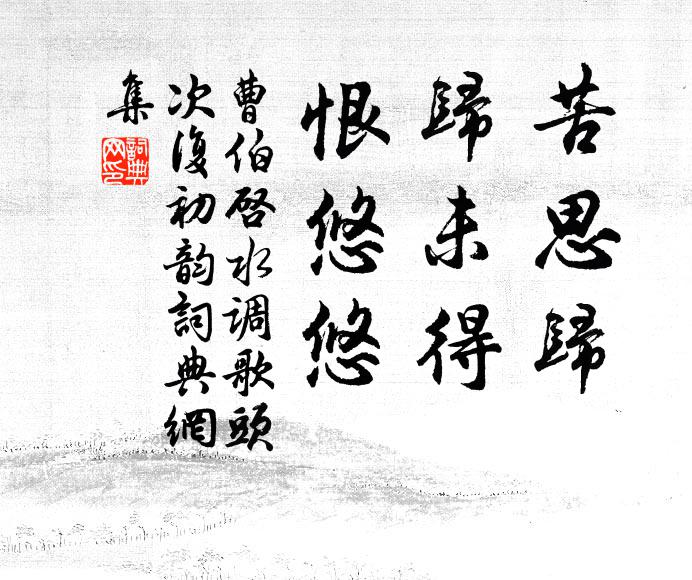 苦思歸
歸未得
恨悠悠
曹伯啓水调歌頭
次復初韵詞典網
集
詞典
网印